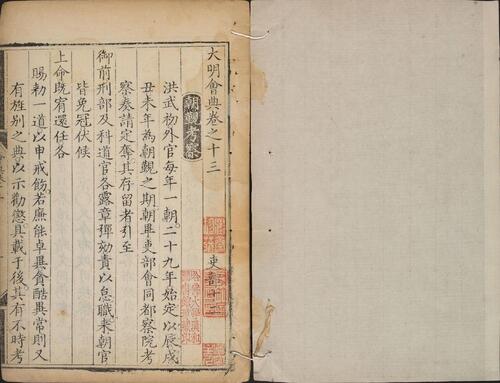 大明會典卷之十三
吏部十二
朝覲考察
洪武初外官每年一朝二十九年始定以辰戌
丑未年為朝覲之期朝畢吏部會同都察院考
察奏請定奪其存留者引至
御前刑部及科道官各露章彈劾責以怠職來朝官
皆免冠伏候
上命既宥還任各
賜勑一道以申戒飭若廉能卓異貪酷異常則又
有旌別之典以示勸懲具載于後其有不時考